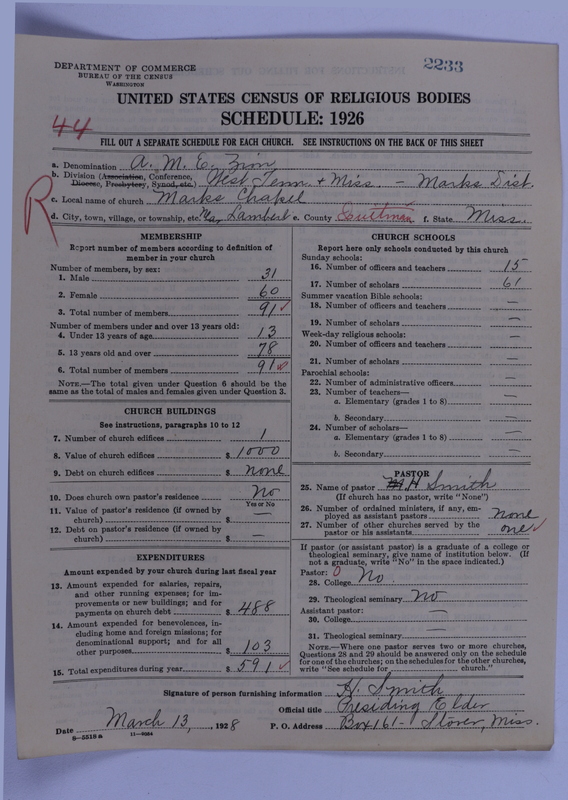 2233
DEPARTMENT OF COMMERCE
BUREAU OF THE CENSUS
WASHINGTON
UNITED STATES CENSUS OF RELIGIOUS BODIES
SCHEDULE: 1926
44
FILL OUT A SEPARATE SCHEDULE FOR EACH CHURCH. SEE INSTRUCTIONS ON THE BACK OF THIS SHEET
R
a. Denomination A. M. E. Zion
b. Division (Association, Conference, Diocese, Presbytery, Synod, etc.) West Tenn. & Miss. - Marks Dist.
c. Local name of church Marks Chapel
d. City, town, village, or township, etc. Lambert e. County Quitman f. State Miss.
MEMBERSHIP
Report number of members according to definition of member in your church
Number of members, by sex:
1. Male 31
2. Female 60
3. Total number of members 91
Number of members under and over 13 years old:
4. Under 13 years of age 13
5. 13 years old and over 78
6. Total number of members 91
NOTE.—The total given under Question 6 should be the same as the total of males and females given under Question 3.
CHURCH BUILDINGS
See instructions, paragraphs 10 to 12
7. Number of church edifices 1
8. Value of church edifices $ 1000
9. Debt on church edifices $ none
10. Does church own pastor's residence No
Yes or No
11. Value of pastor's residence (if owned by church) $ —
12. Debt on pastor's residence (if owned by church) $ —
EXPENDITURES
Amount expended by your church during last fiscal year
13. Amount expended for salaries, repairs, and other running expenses; for improvements or new buildings; and for payments on church debt $ 488
14. Amount expended for benevolences, including home and foreign missions; for denominational support; and for all other purposes $ 103
15. Total expenditures during year $ 591
CHURCH SCHOOLS
Report here only schools conducted by this church
Sunday schools:
16. Number of officers and teachers 15
17. Number of scholars 61
Summer vacation Bible schools:
18. Number of officers and teachers —
19. Number of scholars —
Week-day religious schools:
20. Number of officers and teachers —
21. Number of scholars —
Parochial schools:
22. Number of administrative officers —
23. Number of teachers—
a. Elementary (grades 1 to 8) —
b. Secondary —
24. Number of scholars—
a. Elementary (grades 1 to 8) —
b. Secondary —
PASTOR
25. Name of pastor H Smith
(If church has no pastor, write "None")
26. Number of ordained ministers, if any, employed as assistant pastors None
27. Number of other churches served by the pastor or his assistants one
If pastor (or assistant pastor) is a graduate of a college or theological seminary, give name of institution below. (If not a graduate, write "No" in the space indicated.)
Pastor: 0
28. College No
29. Theological seminary No
Assistant pastor:
30. College —
31. Theological seminary —
NOTE.—Where one pastor serves two or more churches, Questions 28 and 29 should be answered only on the schedule for one of the churches; on the schedules for the other churches, write "See schedule for church."
Signature of person furnishing information H. Smith
Official title Presiding Elder
Date March 13, 1928 P. O. Address Box 161 - Stover, Miss.
8-5518a 11-9364